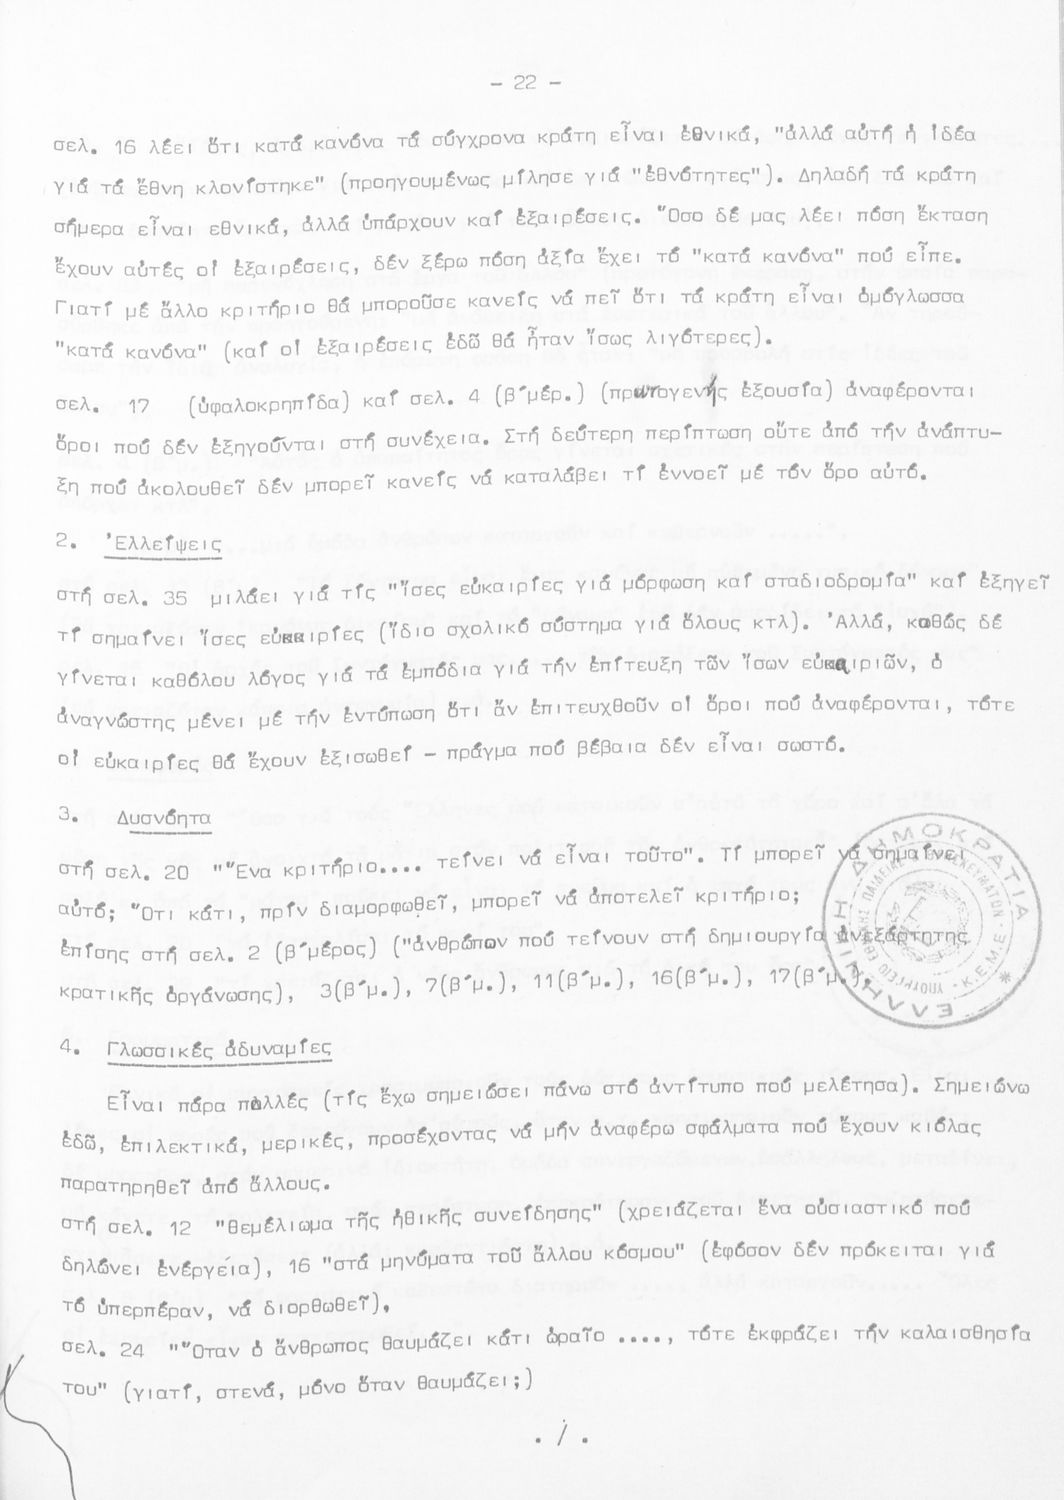 - 22 -
σελ. 16 λέει ὅτι κατά κανόνα τά σύγχρονα κράτη εἶναι ἐθνικά, "ἀλλά αὐτή ἡ ἰδέα
γιά τά ἔθνη κλονίστηκε" (προηγουμένως μίλησε γιά "ἐθνότητες"). Δηλαδή τά κράτη
σήμερα εἶναι εθνικά, ἀλλά ὑπάρχουν καί ἐξαιρέσεις. Ὅσο δέ μας λέει πόση ἔκταση
ἔχουν αὐτές οἱ ἐξαιρέσεις, δέν ξέρω πόση ἀξία ἔχει τό "κατά κανόνα" πού εἶπε.
Γιατί μέ ἄλλο κριτήριο θά μποροῦσε κανείς νά πεῖ ὅτι τά κράτη εἶναι ὁμόγλωσσα
"κατά κανόνα" (καί οἱ ἐξαιρέσεις ἐδῶ θά ἦταν ἴσως λιγότερες).
σελ. 17 (ὑφαλοκρηπίδα) καί σελ. 4 (β΄μέρ.) (πρωτογενής ἐξουσία) ἀναφέρονται
ὅροι πού δέν ἐξηγοῦνται στή συνέχεια. Στή δεύτερη περίπτωση οὔτε ἀπό τήν ἀνάπτυ-
ξη πού ἀκολουθεῖ δέν μπορεῖ κανείς νά καταλάβει τί ἐννοεῖ μέ τόν ὅρο αὐτό.
2. Ἐλλείψεις
στή σελ. 35 μιλάει γιά τίς "ἴσες εὐκαιρίες γιά μόρφωση καί σταδιοδρομία" καί ἐξηγεῖ
τί σημαίνει ἴσες εὐκαιρίες (ἴδιο σχολικό σύστημα γιά ὅλους κτλ). Ἀλλά, καθώς δέ
γίνεται καθόλου λόγος γιά τά ἐμπόδια γιά τήν ἐπίτευξη τῶν ἴσων εὐκαιριῶν, ὁ
ἀναγνώστης μένει μέ τήν ἐντύπωση ὅτι ἄν ἐπιτευχθοῦν οἱ ὅροι πού ἀναφέρονται, τότε
οἱ εὐκαιρίες θά ἔχουν ἐξισωθεί - πράγμα πού βέβαια δέν εἶναι σωστό.
3. Δυσνόητα
στή σελ. 20 "Ἕνα κριτήριο.... τείνει νά εἶναι τοῦτο". Τί μπορεῖ νά σημαίνει
αὐτό; Ὅτι κάτι, πρίν διαμορφωθεῖ, μπορεῖ νά ἀποτελεῖ κριτήριο;
ἐπίσης στή σελ. 2 (β΄μέρος) ("ἀνθρώπων πού τείνουν στή δημιουργία ἀνεξάρτητης
κρατικῆς ὀργάνωσης), 3(β΄μ.), 7(β΄μ.), 11(β΄μ.), 16(β΄μ.), 17(β΄μ.),
ΕΛΛΗΝΙΚΗ ΔΗΜΟΚΡΑΤΙΑ
ΥΠΟΥΡΓΕΙΟ ΕΘΝΙΚΗΣ ΠΑΙΔΕΙΑΣ & ΘΡΗΣΚΕΥΜΑΤΩΝ - Κ.Ε.Μ.Ε.
4. Γλωσσικές ἀδυναμίες
Εἶναι πάρα πολλές (τίς ἔχω σημειώσει πάνω στό ἀντίτυπο πού μελέτησα). Σημειώνω
ἐδῶ, ἐπιλεκτικά, μερικές, προσέχοντας νά μήν ἀναφέρω σφάλματα πού ἔχουν κιόλας
παρατηρηθεῖ ἀπό ἄλλους.
στή σελ. 12 "θεμέλιωμα τῆς ἠθικῆς συνείδησης" (χρειάζεται ἕνα οὐσιαστικό πού
δηλώνει ἐνέργεία), 16 "στά μηνύματα τοῦ ἄλλου κόσμου" (ἐφόσον δέν πρόκειται γιά
τό ὑπερπέραν, νά διορθωθεῖ),
σελ. 24 "Ὅταν ὁ ἄνθρωπος θαυμάζει κάτι ὡραῖο ...., τότε ἐκφράζει τήν καλαισθησία
του" (γιατί, στενά, μόνο ὅταν θαυμάζει;)
. / .